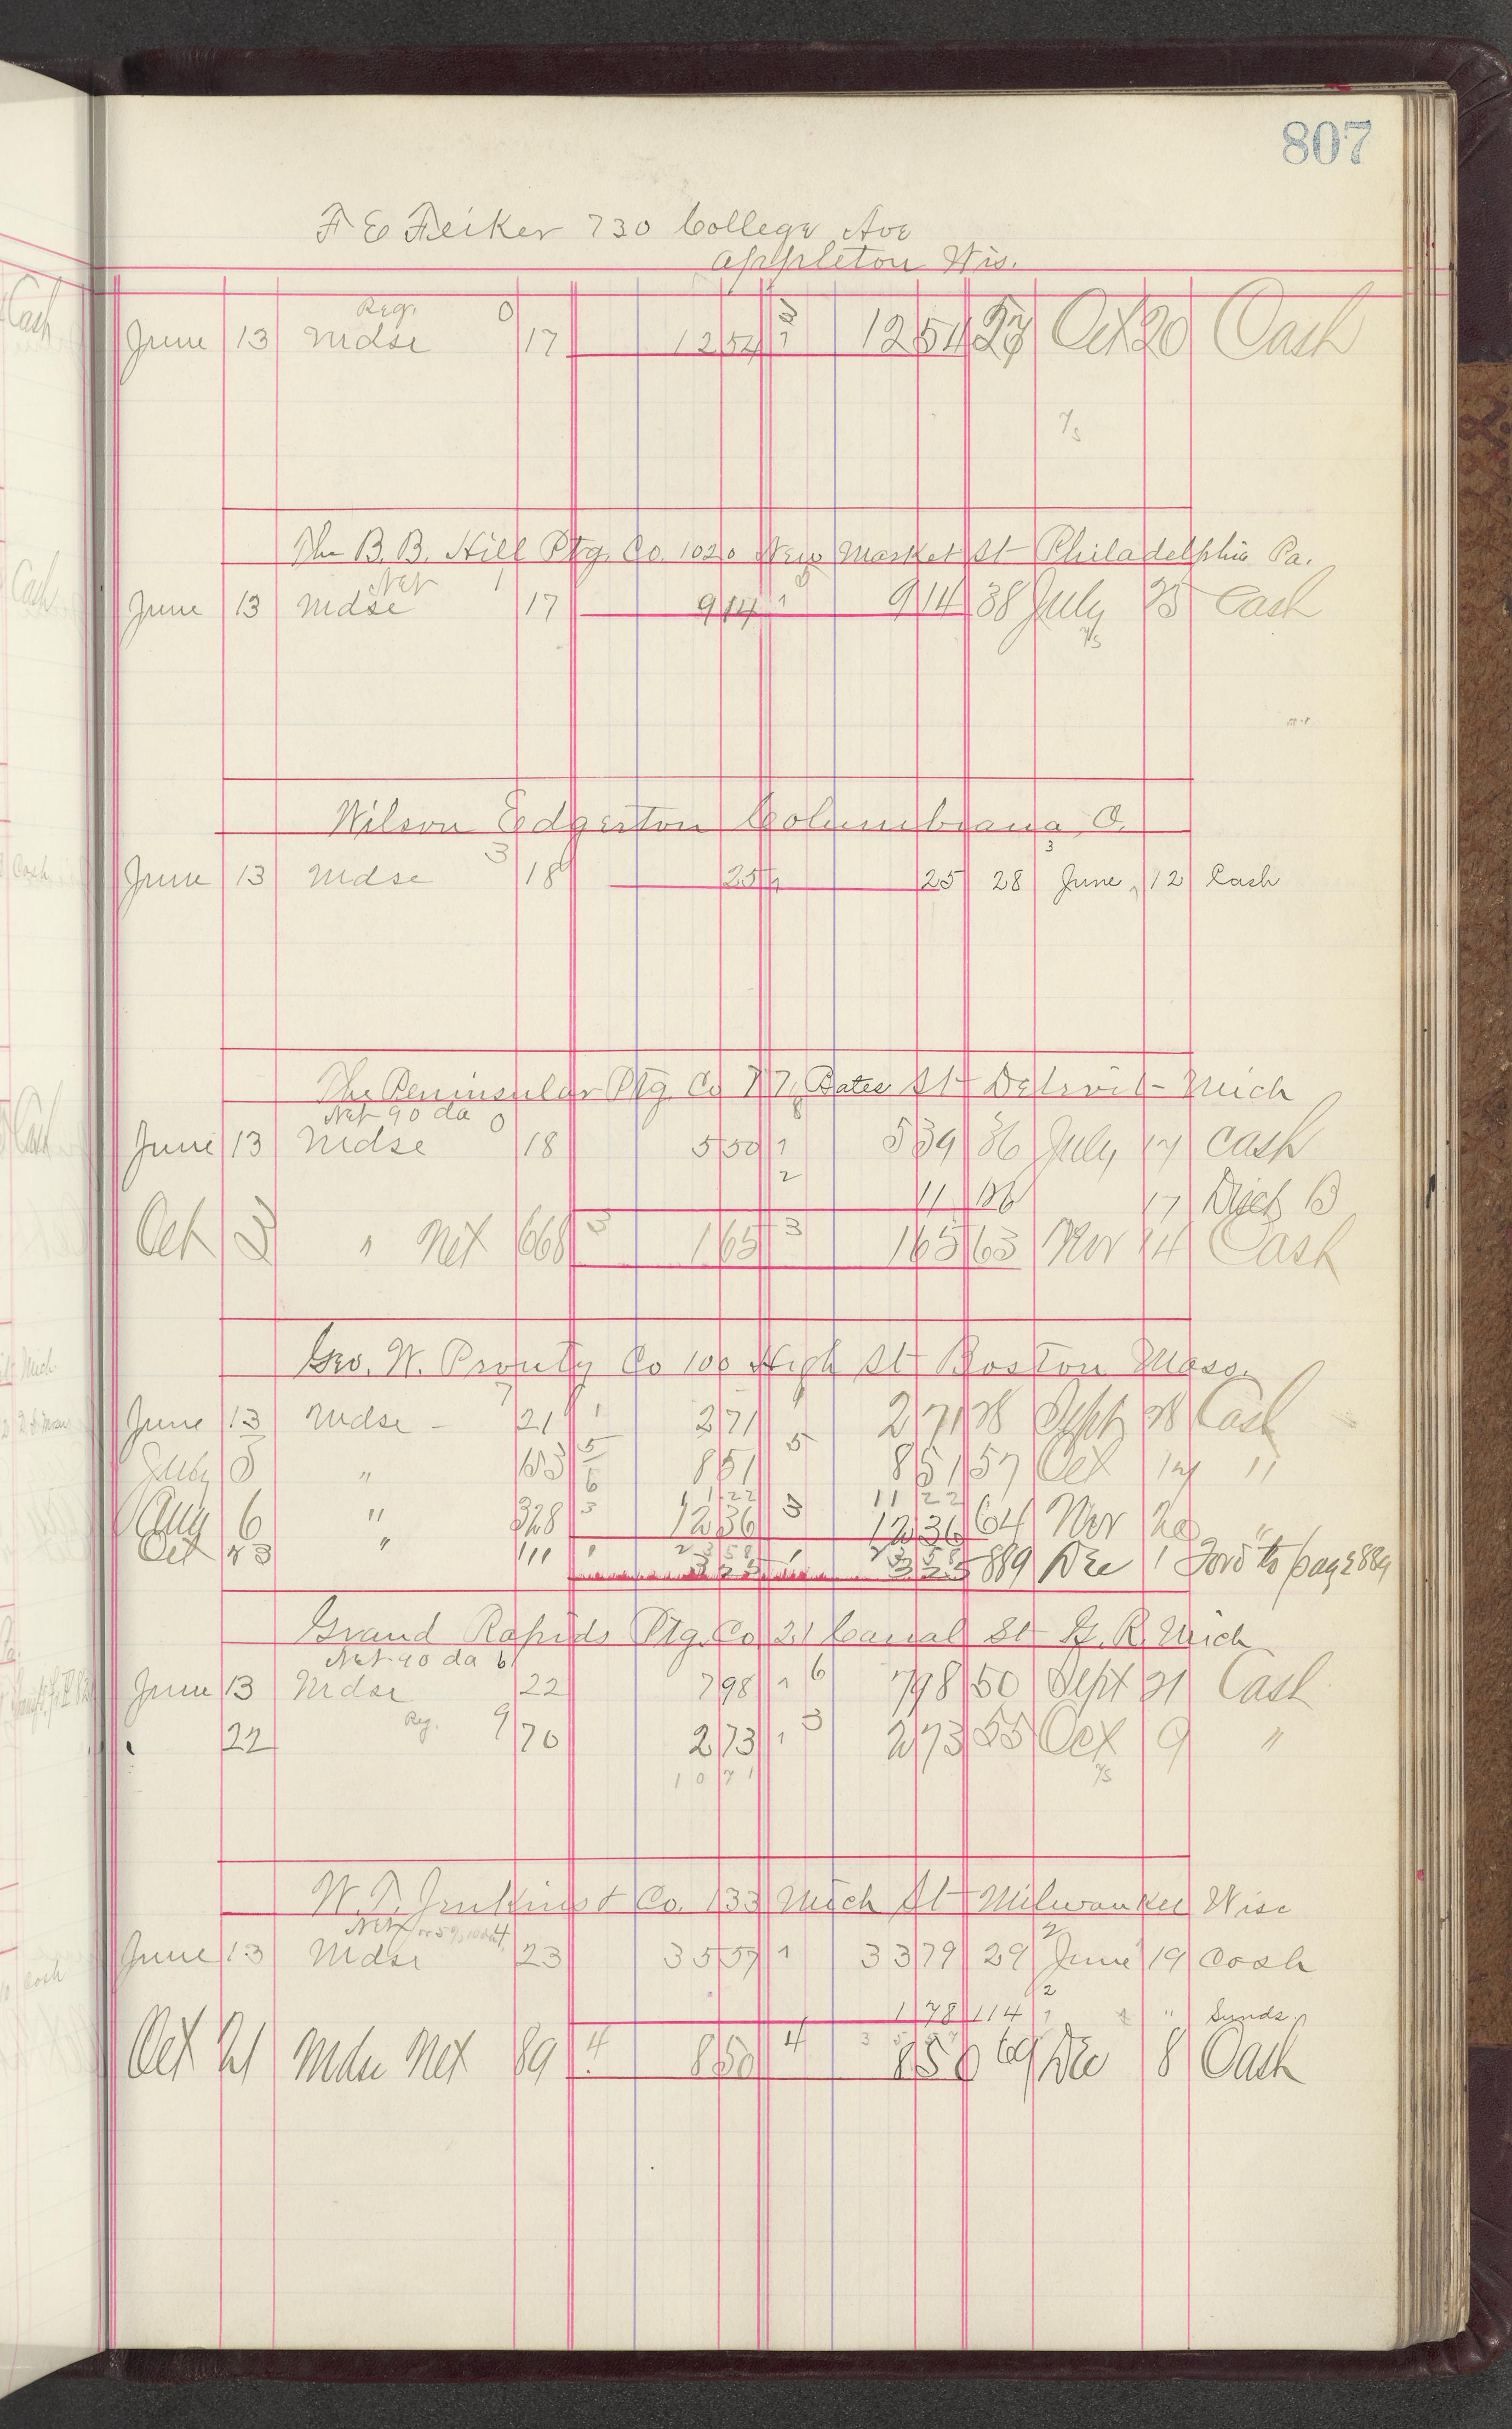 807
F E Feiker 730 College Ave
Appleton Wis.
Reg. 0
June 13 Mdse 17 12 54 1 12 54 57 Oct 20 Cash
7/3
The B. B. Hill Ptg. Co. 1020 New Market St Philadelphia Pa.
Net 1
June 13 Mdse 17 9 14 1 9 14 38 July 25 Cash
Wilson Edgerton Columbiana, O.
3 3
June 13 Mdse 18 25 1 25 28 June 12 Cash
The Peninsular Ptg. Co 77 Bates St Detroit Mich
Net 90 da 0 8
June 13 Mdse 18 5 50 1 5 39 36 July 17 Cash
2 11 17 Disct B
Oct 3 " Net 668 3 1 65 3 1 65 63 Nov 14 Cash
Geo. W. Prouty Co 100 High St Boston Mass.
7
June 13 Mdse 21 1 2 71 1 2 71 Sept 28 Cash
July 8 " 153 5 8 51 5 8 51 57 Oct 14 "
6 11 22 11 22
Aug 6 " 328 3 12 36 3 12 36 64 Nov 20 "
Oct 23 " 111 1 23 58 1 23 58
3 25 3 25 889 Dec 1 Ford to page 889
Grand Rapids Ptg. Co 21 Canal St G. R. Mich
Net 90 da 6
June 13 Mdse 22 7 98 1 6 7 98 50 Sept 21 Cash
22 Reg. 9 70 2 73 1 3 2 73 55 Oct 9 "
10 71
W. T. Jenkins & Co. 133 Mich St Milwaukee Wisc
Net
June 13 Mdse 23 35 57 1 33 79 29 June 19 Cash
1 78 114 " Sunds
Oct 21 Mdse Net 89 4 8 50 4 8 50 69 Dec 8 Cash